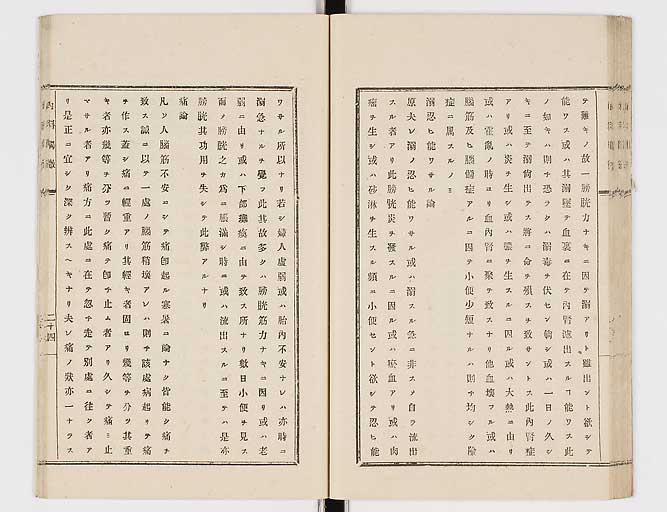 テ難キノ故一膀胱力ナキニ因テ溺アリト雖出ント欲シテ
能ワス或ハ其溺壅テ血裏ニ在テ內腎濾出スルコ能ワス此
ノ如キハ則チ恐ラクハ溺毒ヲ伏セン軔シ或ハ一日ノ久シ
キニ至テ溺尙出テス將ニ命ヲ殞スヲ致サントス此內腎症
アリ或ハ炎ヲ生シ或ハ膿ヲ生スルニ因ル或ハ大熱ニ由リ
或ハ霍亂ノ時ヨリ血內腎ニ聚テ致スナリ他血壞フル或ハ
腦筋及ヒ腦髓症アルニ因テ小便少短ナルハ則チ均シク險
症ニ属スルノミ
溺忍ヒ能ワサル論
原夫レ溺ノ忍ヒ能ワサル或ハ溺ルル急ニ非スノ自ラ流出
スル者アリ此膀胱炎ヲ發スルニ因ル或ハ瘀血アリ或ハ肉
瘤ヲ生シ或ハ砂淋ヲ生スル頻ニ小便セント欲シテ忍ヒ能
ワサル所以ナリ若シ婦人虛弱或ハ胎內不安ナレハ亦時ニ
溺急ナルヲ覺フ此其故多クハ膀胱筋力ナキニ因リ或ハ老
弱ニ由リ或ハ下部癱瘓ニ由テ致ス所ナリ數日小便ヲ見ス
而ノ膀胱之カ爲ニ脹滿シ時ニ或ハ流出スルニ至テハ是亦
膀胱其功用ヲ失シテ此弊アルナリ
痛論
凡ソ人腦筋不安ニシテ痛卽起ル寒暑ニ論ナク皆能ク痛ヲ
致ス誠ニ以テ一處ノ腦筋稍壞アレハ則チ該處病起リテ痛
ヲ作ス蓋シ痛ニ輕重アリ其輕キ者固ヨリ幾等ヲ分ツ其重
キ者亦幾等ヲ分ツ暫ク痛テ卽チ止ム者アリ久シテ痛ミ止
マサル者アリ痛方ニ此處ニ在テ忽チ走テ別處ニ往ク者ア
リ是正ニ宜シク深ク辨スヘキナリ夫レ痛ノ狀亦一ナラス
二十四